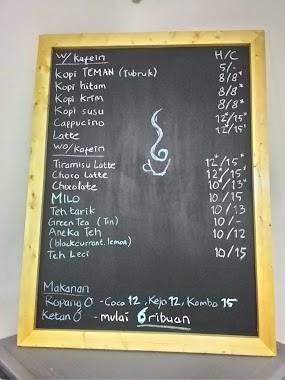 w/ kafein H/C
Kopi TEMAN (Tubruk) 5/-
Kopi hitam 8/8*
Kopi krim 8/8*
Kopi susu 8/8*
Cappucino 12*/15*
Latte 12*/15*
wo/kafein
Tiramisu Latte 12*/15*
Choco Latte 12*/15*
Chocolate 10*/13*
MILO 10/15
Teh tarik 10/13
Green Tea (Tin) 10/-
Aneka Teh 10/12
(blackcurrant, lemon)
Teh Leci 10/15
Makanan
Ropang - Coco 12, Keja 12, Kombo 15
Ketan - mulai 6 ribuan